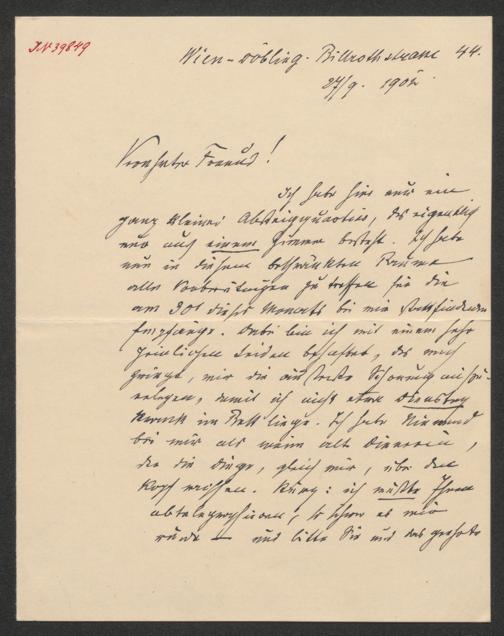 IN 39849
Wien-Döbling. Billrothstrasse 44.
27/9. 1902.
Verehrter Freund!
Ich habe hier nur ein
ganz kleines Absteigquartier, das eigentlich
nur aus einem Zimmer besteht. Ich habe
nun in diesem beschränkten Raume
alle Vorbereitungen zu treffen für die
am 30t dieses Monats bei mir stattfindenden
Empfänge. Dabei bin ich mit einem sehr
peinlichen Leiden behaftet, das mich
zwingt, mir die äußerste Schonung aufzu-
erlegen, damit ich nicht etwa Dienstag
krank im Bett liege. Ich habe Niemand
bei mir als meine alte Dienerin,
der die Dinge, gleich mir, über den
Kopf wachsen. Kurz: ich mußte Ihnen
abtelegraphieren, so schwer es mir
wurde — und bitte Sie und das geehrte